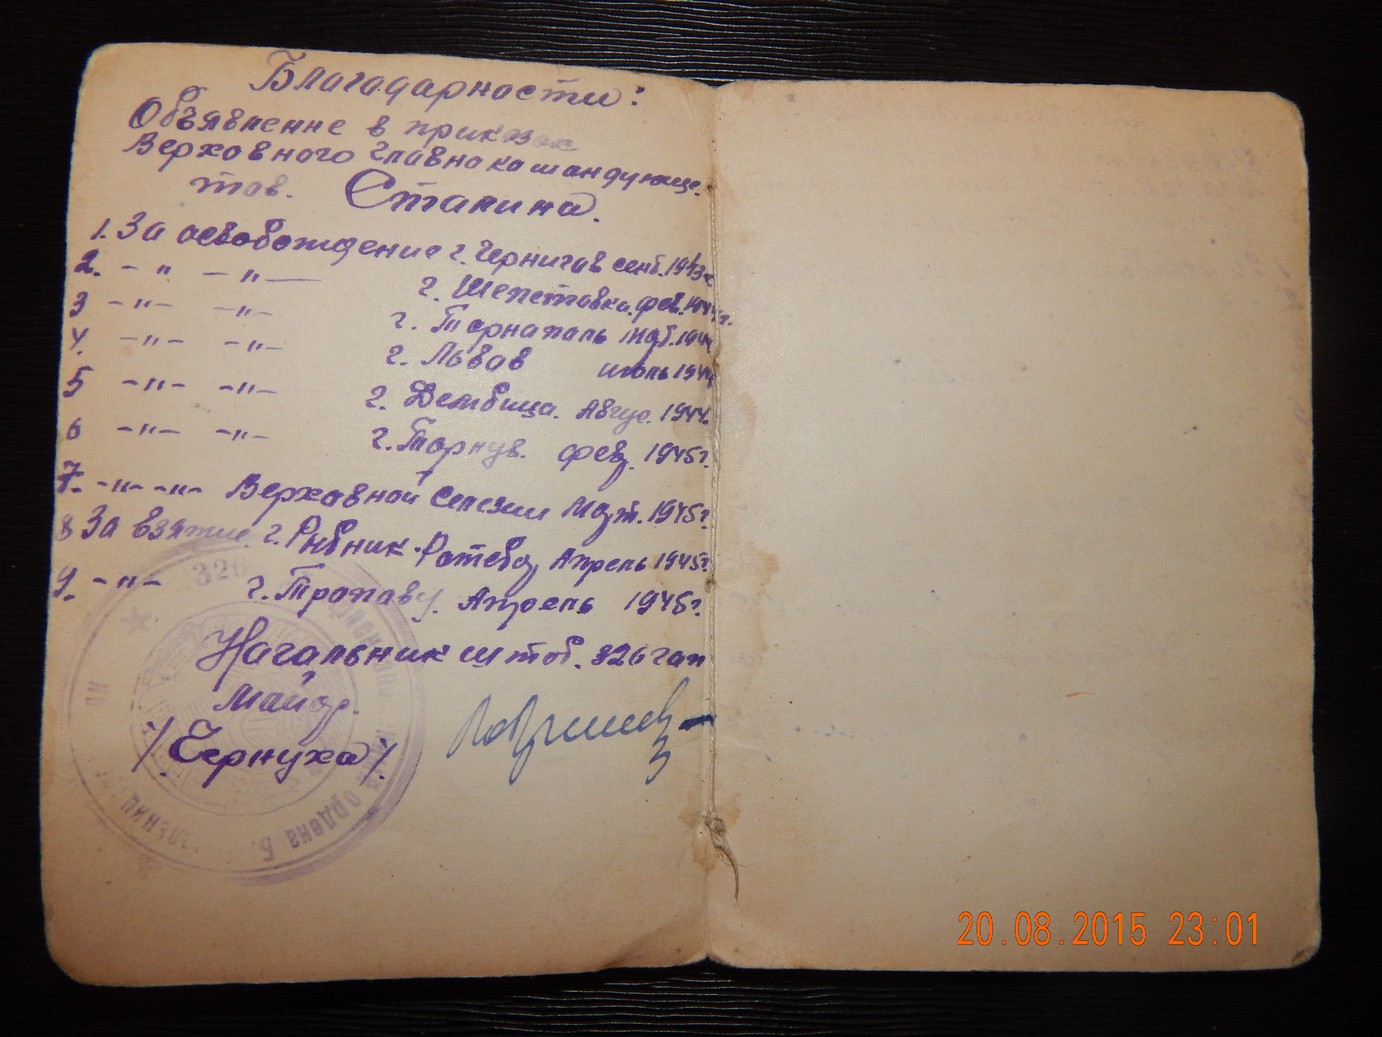 Благодарности:
Объявление в приказах
Верховного Главнокомандующе.
тов. Сталина.
1. За освобождение г. Чернигов сент. 1943г.
2. -"- -"- г. Шепетовка. фев. 1944г.
3 -"- -"- г. Тарнаполь Март. 1944
4. -"- -"- г. Львов июль 1944
5 -"- -"- г. Дембица. Авгус. 1944.
6 -"- -"- г. Тарнув. фев. 1945г.
7. -"- -"- Верховной Селезии Март. 1945г.
8 За взятие г. Рыбник. Ратебор Апрель 1945г.
9. -"- г. Тропаву. Апрель 1945г.
Начальник штаб. 326 гап
Майор.
/Чернуха/.
326
Ордена Б.
20.08.2015 23:01